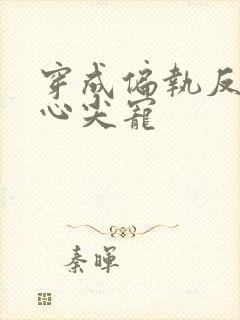 穿成偏執反
心尖寵
秦暉